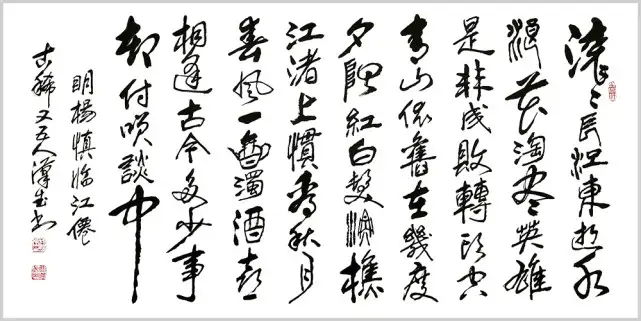 滚滚長江東逝水
浪花淘盡英雄
是非成敗轉頭空
青山依舊在幾度
夕陽紅白髮漁樵
江渚上慣看秋月
春風一壺濁酒喜
相逢古今多少事
都付笑談中
明楊慎臨江僊
古稀又五人漢生书